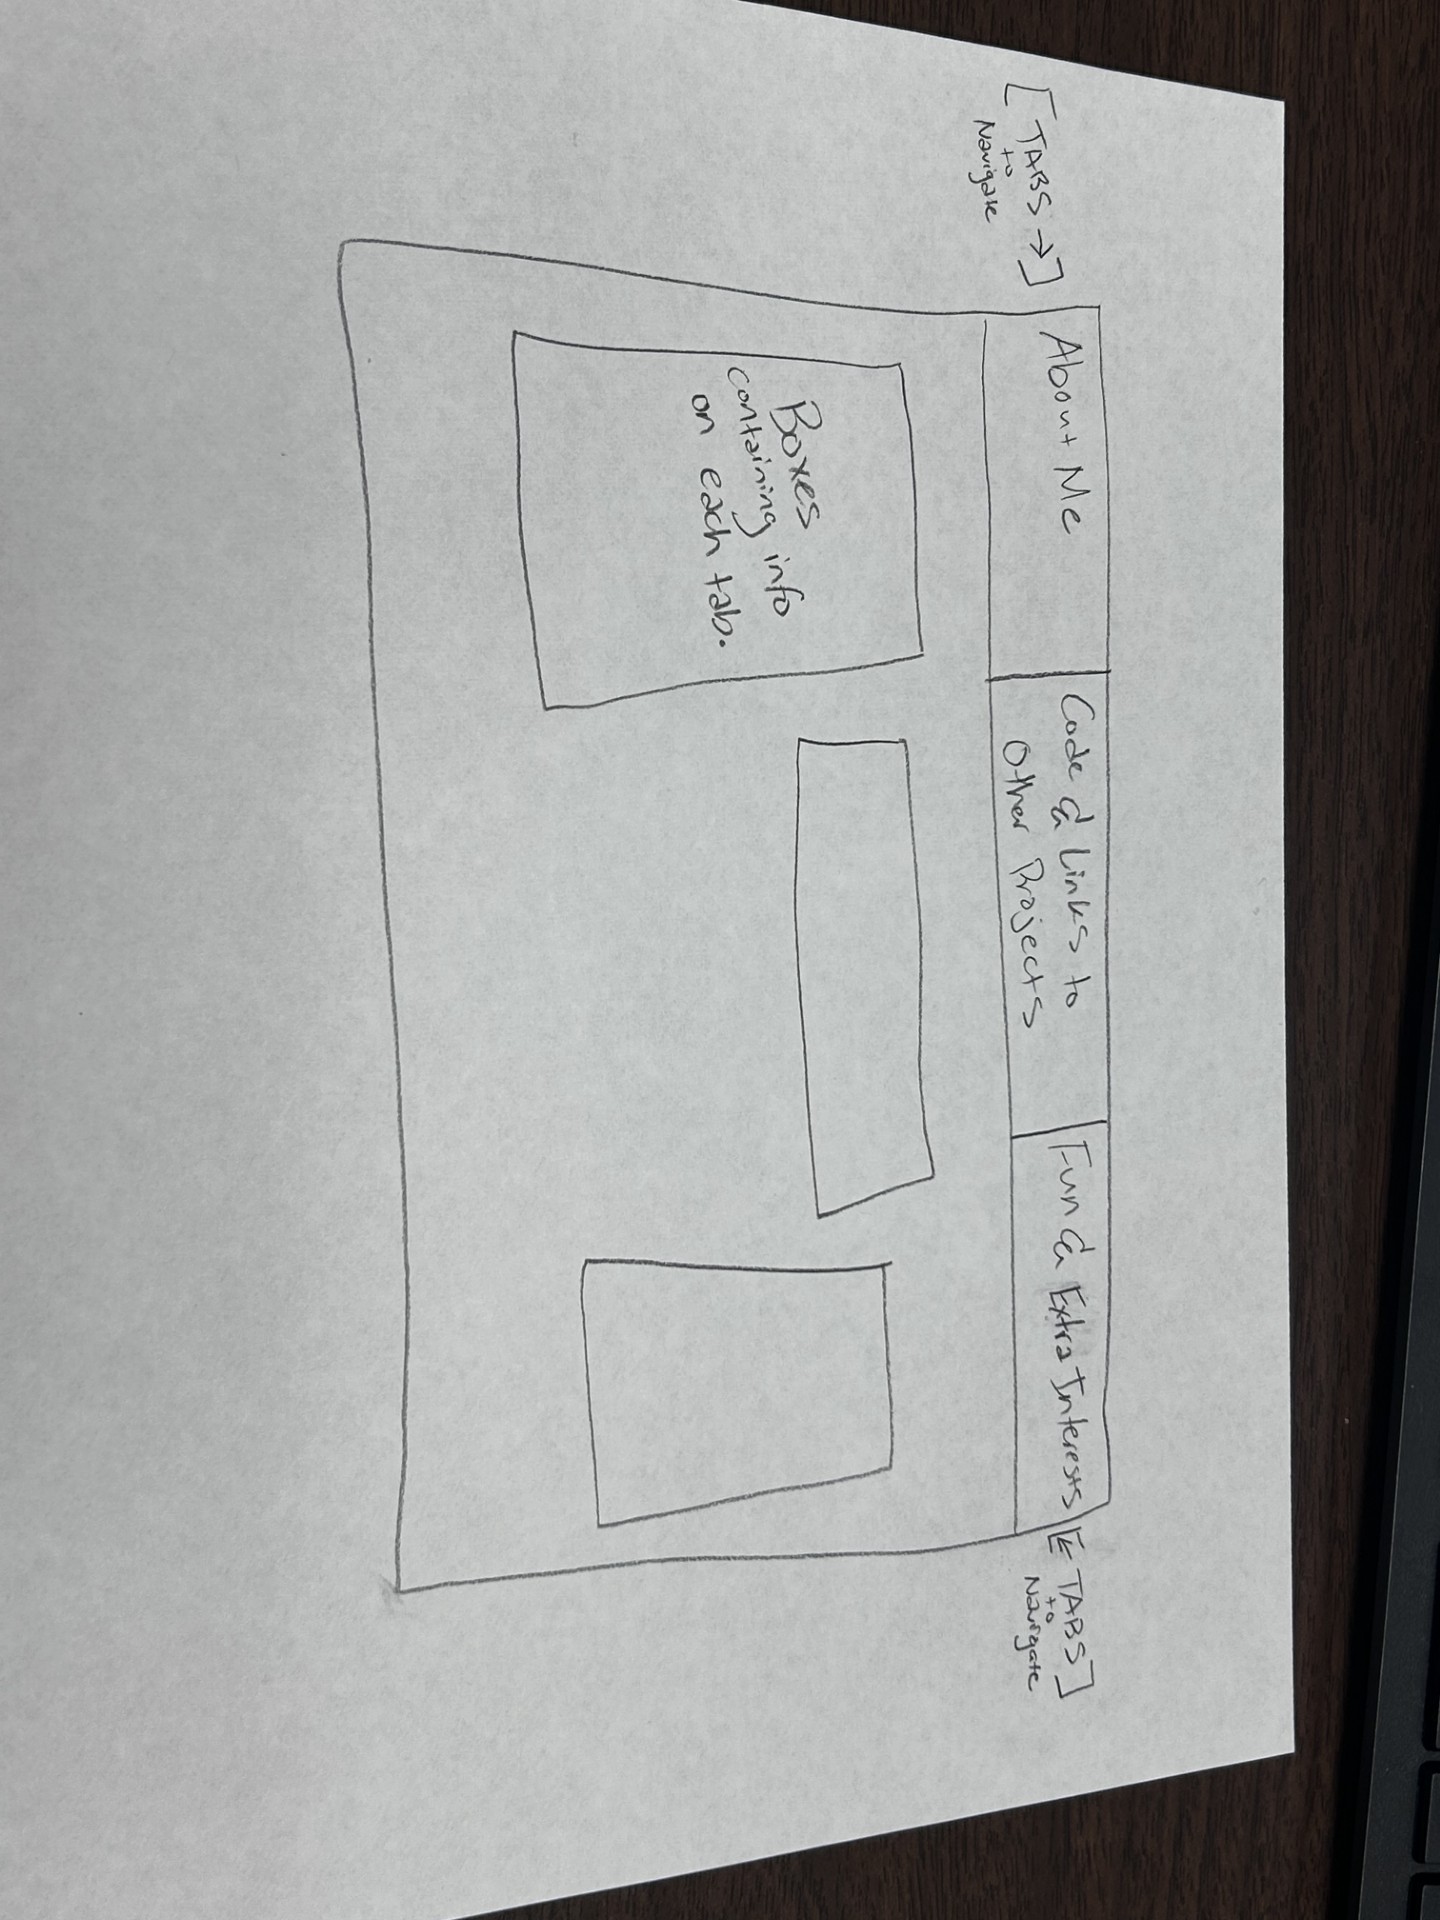 [TABS →]
to
Navigate
About Me
Code & Links to
Other Projects
Fun & Extra Interests
[← TABS]
to
Navigate
Boxes
containing info
on each tab.